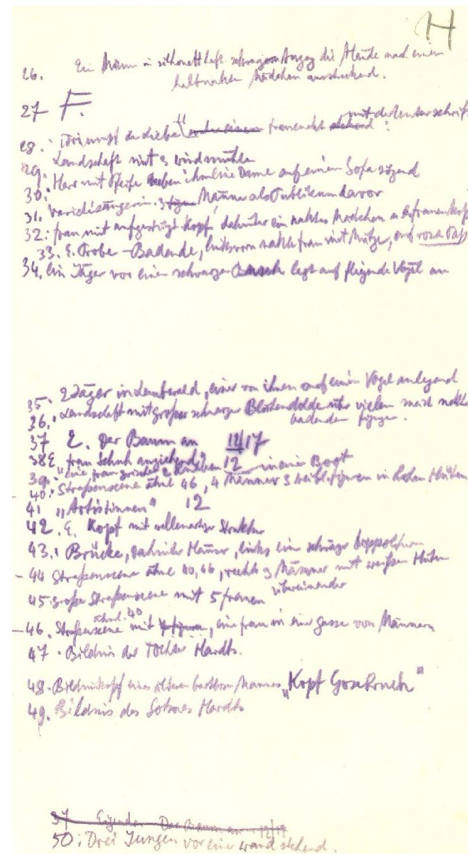 H
26. Ein Mann in silhouetthaft schwarzem Anzug die Hände nach einem
halbnackten Mädchen ausstreckend.
27 F.
28. Triumpf der Liebe mit der Unterschrift
29. Landschaft mit 3 Windmühlen
30. Herr mit Pfeife neben ihm eine Dame auf einem Sofa sitzend
31. Varietésängerin. Männer als Publikum davor
32: Frau mit aufgestütztem Kopf, dahinter ein nacktes Mädchen
33. E. Probe - Badende, links vorn nackte Frau mit Mütze, auf rosa
34. Ein Jäger vor einem schwarzen Busch legt auf fliegende Vögel an
35. 2 Jäger im Laubwald, einer von ihnen auf einen Vogel anlegend
36. Landschaft mit großer schwarzer Blütendolde vielen nackt
badenden Figuren.
37 E. Der Baum an 12/17
38 E. Frau Schuh anziehend 12
39. Eine Frau zwischen 2 in einem Boot
40. Straßenszene ähnl 46, 4 Männer 3 weibl. Figuren in hohen Hüten
41 "Artistinnen" 12
42. E. Kopf mit wellenartiger Struktur
43. Brücke, dahinter Häuser, links ein schräger
- 44 Straßenszene ähnl 40, 46, rechts 3 Männer mit weißen Hüten
übereinander
45 große Straßenszene mit 5 Frauen
ähnl. 40
- 46. Straßenszene mit, eine Frau in einer Gasse von Männern
47. Bildnis der Tochter Hardts.
48. Bildniskopf eines älteren bartlosen Mannes "Kopf Gosebruch"
49. Bildnis des Sohnes Hardts
37 Eigendr. Der Baum an 12/17
50: Drei Jungen vor einer Wand stehend.